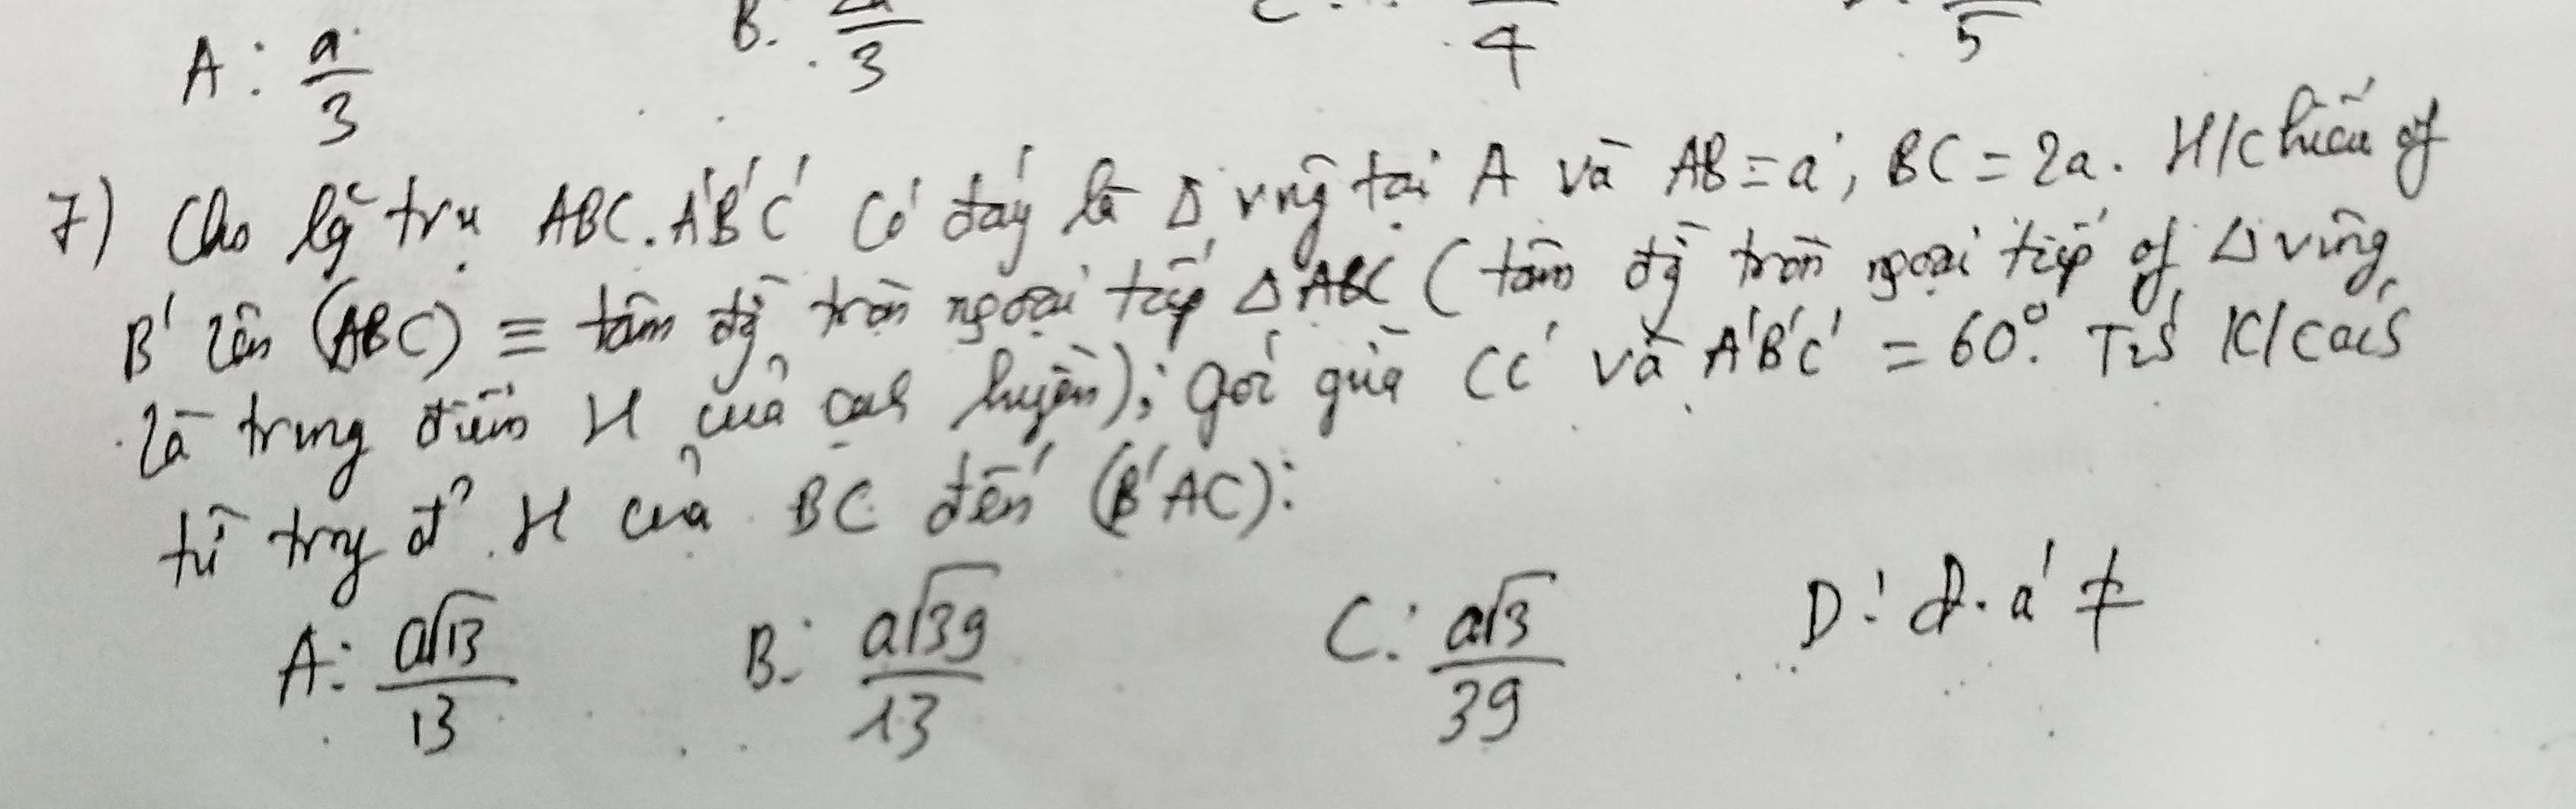 A: a/3 B. 2a/3 C. /4 /5
7) Cho lg trụ ABC.A'B'C' có đáy là Δ vng̃ tại A và AB = a; BC = 2a. H/chiếu of
B' lên (ABC) ≡ tâm đg̃ tròn ngoại tiếp ΔABC (tâm đg̃ tròn ngoại tiếp of Δ vũng
là trung điểm H của cạnh huyền); góc giữa CC' và A'B'C' = 60°. Tính K/cách
từ trg đ' H của BC đến (B'AC):
A: a√13/13 B: a√39/13 C: a√3/39 D: đ. á ≠